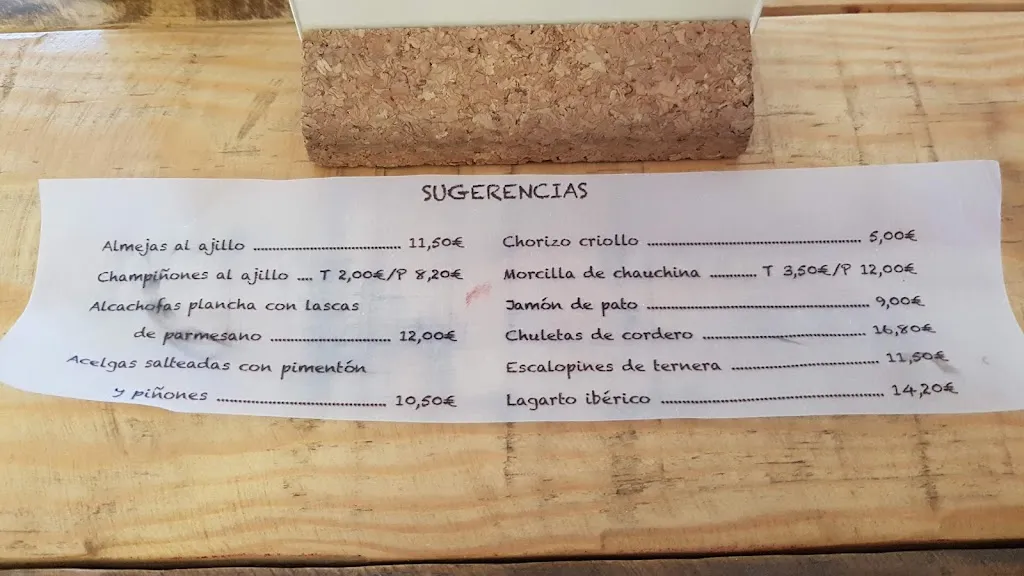 SUGERENCIAS
Almejas al ajillo ........................................ 11,50€
Champiñones al ajillo .... T 2,00€/P 8,20€
Alcachofas plancha con lascas
de parmesano ................................. 12,00€
Acelgas salteadas con pimentón
y piñones .............................................. 10,50€
Chorizo criollo .......................................................... 5,00€
Morcilla de chauchina ............ T 3,50€/P 12,00€
Jamón de pato ............................................................ 9,00€
Chuletas de cordero ................................................ 16,80€
Escalopines de ternera ........................................ 11,50€
Lagarto ibérico ............................................................ 14,20€